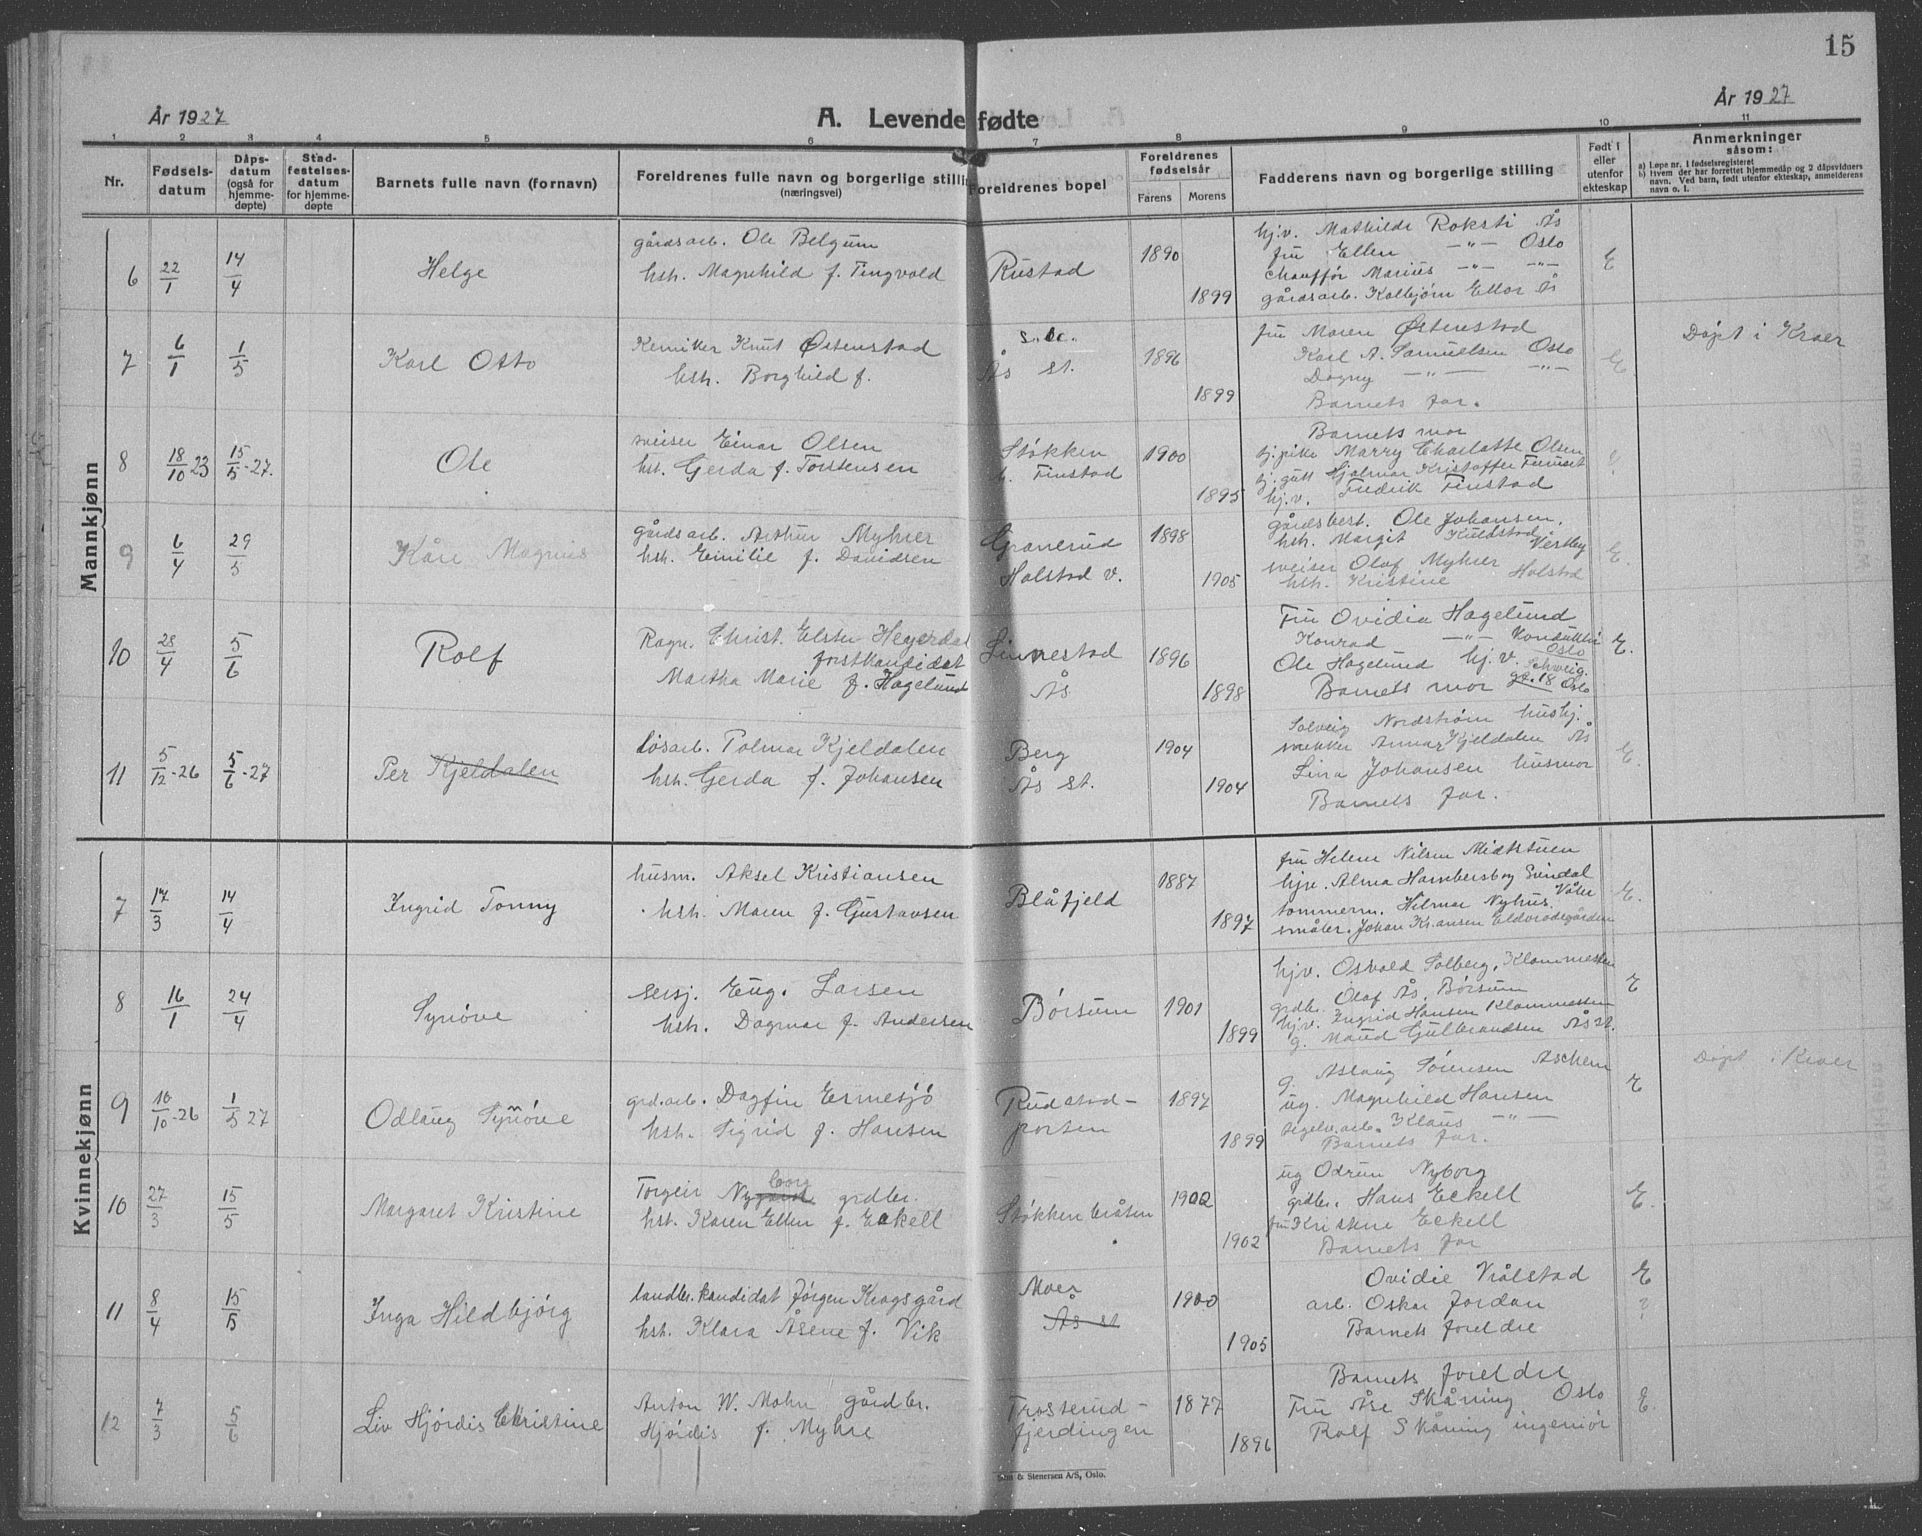 15
År 1927
A. Levendefødte
År 1927
1 2 3 4 5 6 7 8 9 10 11
Nr.
Fødsels-
datum
Dåps-
datum
(også for
hjemme-
døpte)
Stad-
festelses-
datum
for hjemme-
døpte
Barnets fulle navn (fornavn)
Foreldrenes fulle navn og borgerlige stilling
(næringsvei)
Foreldrenes bopel
Foreldrenes
fødselsår
Farens Morens
Fadderens navn og borgerlige stilling
Født i
eller
utenfor
ekteskap
Anmerkninger
såsom:
a) Løpe nr. i fødselsregisteret
b) Hvem der har forrettet hjemmedåp og 2 dåpsvidners
navn. Ved barn, født utenfor ekteskap, anmelderens
navn o. l.
Mannkjønn
6 22/1 14/4 Helge
gårdsarb. Ole Belgum
hstr. Magnhild f. Tingvold
Rustad
1890
1899
hjv. Mathilde Roksti Ås
fru Ellen -"- Oslo
chauffør Marius -"- -"-
gårdsarb. Kolbjørn Ellor Ås
E
7 6/1 1/5 Karl Otto
Kemiker Knut Østenstad
hstr. Borghild f.
s.st.
Ås st.
1896
1899
fru Maren Østenstad
Karl A. Samuelsen Oslo
Dagny -"- -"-
Barnets far.
Barnets mor
E
Døpt i Kroer
8 18/10 23 15/5-27. Ole
sveiser Einar Olsen
hst. Gerda f. Torstensen
Støkken
h. Finstad
1900
1895
hj.pike Marry Charlotte Olsen
gutt Hjalmar Kristoffer Furuset
hj.v. Fredrik Finstad
E.
9 6/4 29/5 Kåre Magnus
gårdsarb. Arthur Myhrer
hstr. Emilie f. Davidsen
Granerud
Holstad v.
1898
1905
gårdsbest. Ole Johansen,
hstr. Margit Kuldstad Vestby
sveiser Olaf Myhrer
hstr. Kristine Holstad
E.
10 28/4 5/6 Rolf
Ragn. Christ. Elster Heyerdal
forstkandidat
Martha Marie f. Hagelund
Linnestad
Ås
1896
1898
Fru Ovidia Hagelund
Konrad -"- Konduktør
Oslo
Ole Hagelund hj.v. Schweig.
Barnets mor gt. 18 Oslo
E.
11 5/12-26 5/6-27 Per Kjeldalen
løsarb. Polmar Kjeldalen
hstr. Gerda f. Johansen
Berg
Ås st.
1904
1904
Solveig Nordstrøm hushj.
snekker Annar Kjeldalen Ås
Lina Johansen husmor
Barnets far.
E.
Kvinnekjønn
7 17/3 14/4 Ingrid Tonny
husm. Aksel Kristiansen
hstr. Maren f. Gustavsen
Blåfjeld
1887
1897
fru Helene Nilsen Midtstuen
hjv. Alma Hambersbog Svindal
Våler
tommerm. Hilmar Nyhus.
småbr. Johan Kr.ansen Eldorådegården
E.
8 16/1 24/4 Synøve
sersj. Eug. Larsen
hstr. Dagmar f. Andersen
Børsum
1901
1899
hjv. Osvald Solberg, Klommesten
grdbr. Olaf Ås, Børsum
hjv. Ingrid Hansen Klommesten
g. Maud Gulbrandsen Ås st.
E
9 10/10-26 1/5 27 Odlaug Synøve
grd.arb. Dagfin Ermesjö
hstr. Sigrid f. Hansen
Rudstad-
porten
1897
1899
g. Aslaug Sørensen Aschem
ug. Magnhild Hansen
teglv.arb. Klaus -"-
Barnets far.
E
Døpt i Kroer
10 27/3 15/5 Margaret Kristine
Torgeir Nygard borg grdbr.
hst. Karen Ellen f. Eckell
Støkkenbråten
1902
1902
ug Odrun Nyborg
grdbr. Hans Eckell
fru Kristine Eckell
Barnets far
E.
11 8/4 15/5 Inga Hildbjørg
landbr. kandidat Jørgen Krogsgård
hst. Klara Åsene f. Vik
Moer
Ås st
1900
1905
Ovidie Vrålstad
arb. Oskar Jordan
Barnets foreldre
E
?
12 7/3 5/6 Liv Hjørdis Christine
Anton W. Mohn gårdbr.
Hjørdis f. Myhre
Trosterud-
fjerdingen
1877
1896
Barnets foreldre
Fru Åse Skåning Oslo
Rolf Skåning ingeniør
E.
& Stenersen A/S, Oslo.